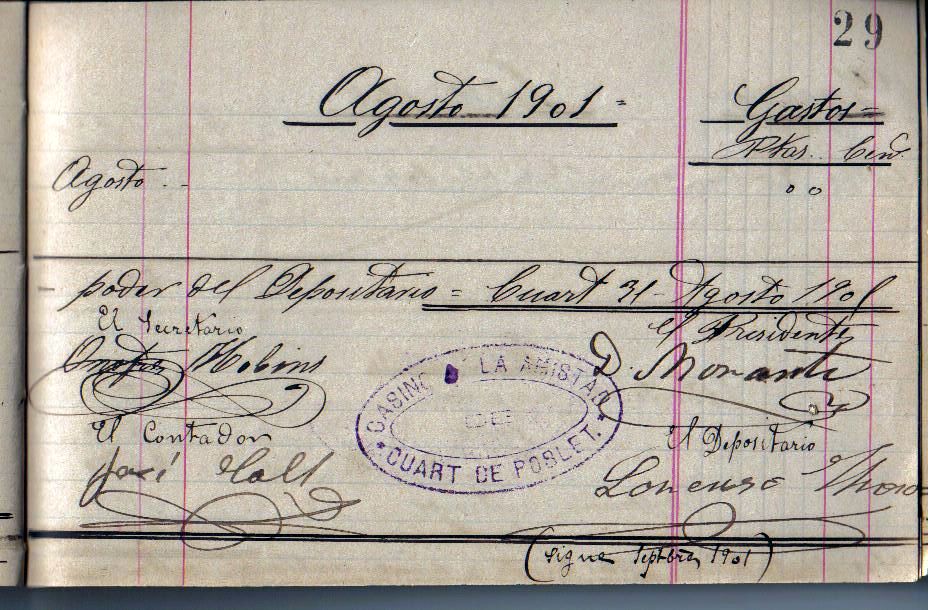 29
Agosto 1901 = Gastos =
Ptas. Cen.
Agosto..
poder del Depositario = Cuart 31 - Agosto 1901
El Secretario El Presidente
D. Morant
CASINO LA AMISTAD
CUART DE POBLET.
El Contador El Depositario
José Lorenzo
(Sigue Septbre 1901)